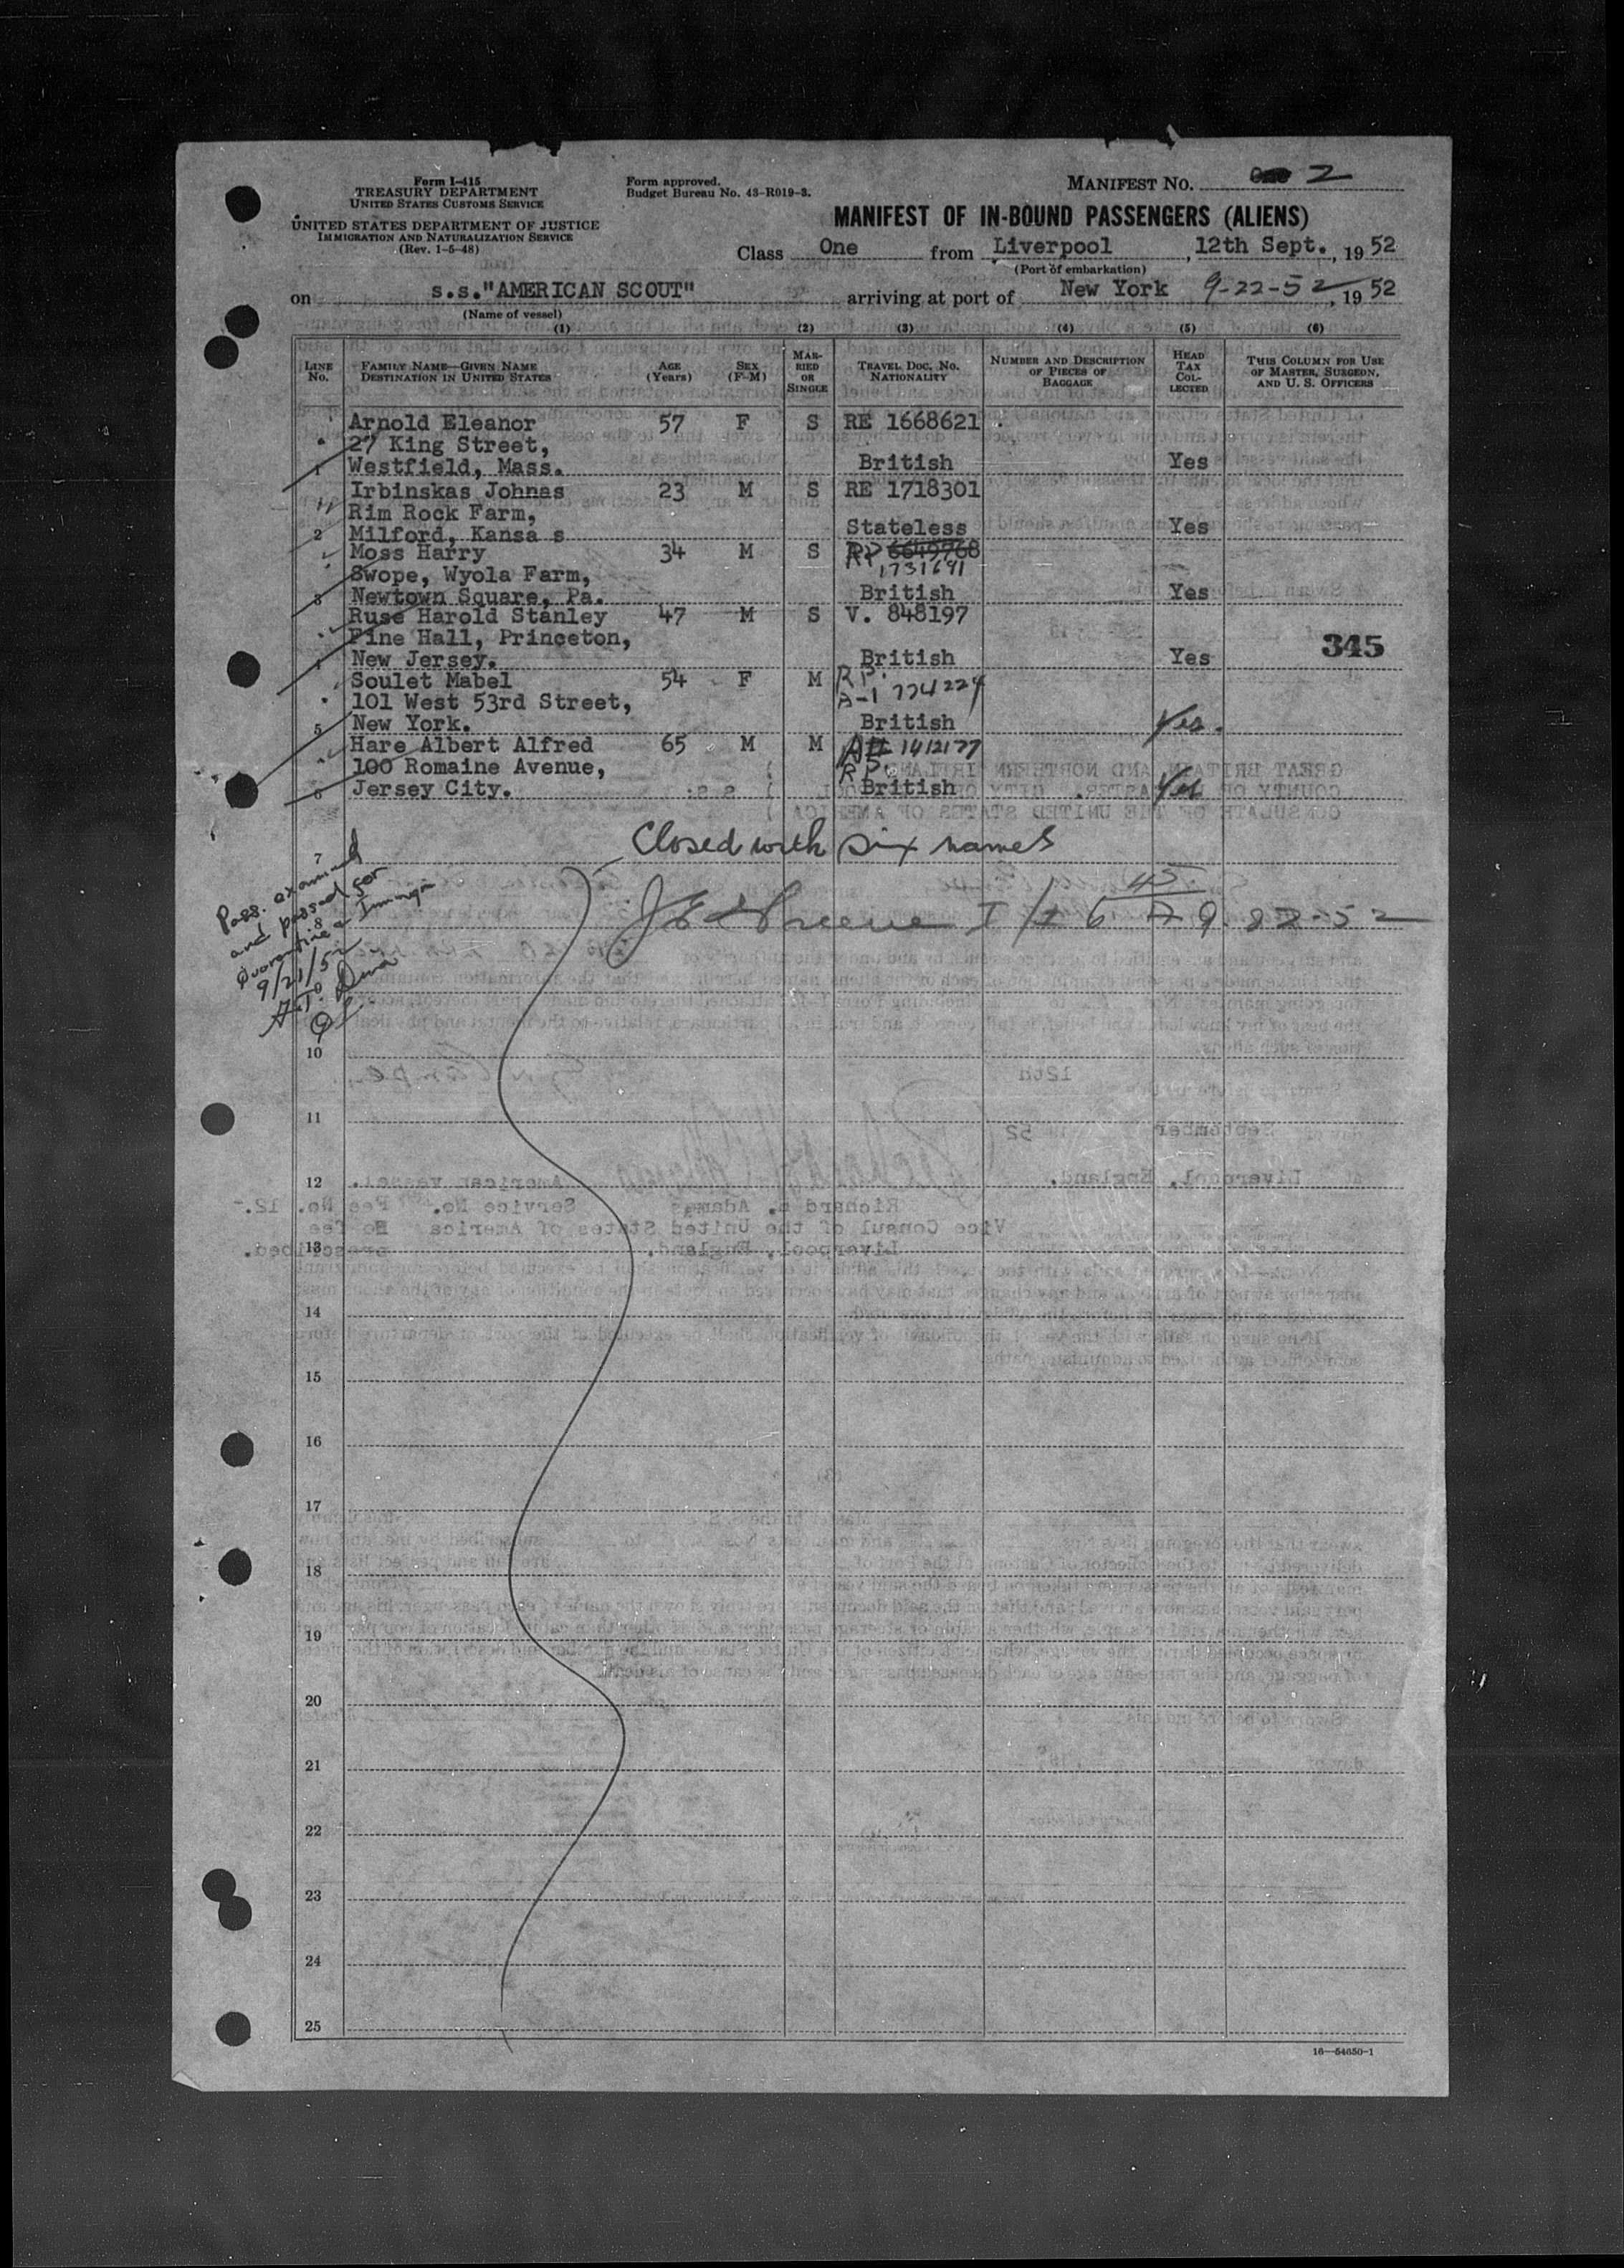 Form I-415
TREASURY DEPARTMENT
UNITED STATES CUSTOMS SERVICE
UNITED STATES DEPARTMENT OF JUSTICE
IMMIGRATION AND NATURALIZATION SERVICE
(Rev. 1-5-48)
Form approved.
Budget Bureau No. 43-R019-3.
MANIFEST NO. 2
MANIFEST OF IN-BOUND PASSENGERS (ALIENS)
Class One from Liverpool, 12th Sept., 1952
(Port of embarkation)
on s.s."AMERICAN SCOUT" arriving at port of New York 9-22-52, 1952
(Name of vessel)
(1) (2) (3) (4) (5) (6)
LINE No. FAMILY NAME—GIVEN NAME DESTINATION IN UNITED STATES AGE (Years) SEX (F-M) MARRIED OR SINGLE TRAVEL DOC. NO. NATIONALITY NUMBER AND DESCRIPTION OF PIECES OF BAGGAGE HEAD TAX COLLECTED THIS COLUMN FOR USE OF MASTER, SURGEON, AND U. S. OFFICERS
Arnold Eleanor 57 F S RE 1668621
27 King Street,
1 Westfield, Mass. British Yes
Irbinskas Johnas 23 M S RE 1718301
Rim Rock Farm,
2 Milford, Kansa s Stateless Yes
Moss Harry 34 M S RP 6649768
1731691
Swope, Wyola Farm,
3 Newtown Square, Pa. British Yes
Ruse Harold Stanley 47 M S V. 848197
Pine Hall, Princeton,
4 New Jersey. British Yes 345
Soulet Mabel 54 F M R P.
A-1 774224
101 West 53rd Street,
5 New York. British Yes.
Hare Albert Alfred 65 M M A# 1412177
100 Romaine Avenue, R P.
6 Jersey City. British Yes
7 Closed with six names
Pass. examined
and passed for
Quarantine &
9/21/52
8
10
11
12
13
14
15
16
17
18
19
20
21
22
23
24
25
16—54650-1